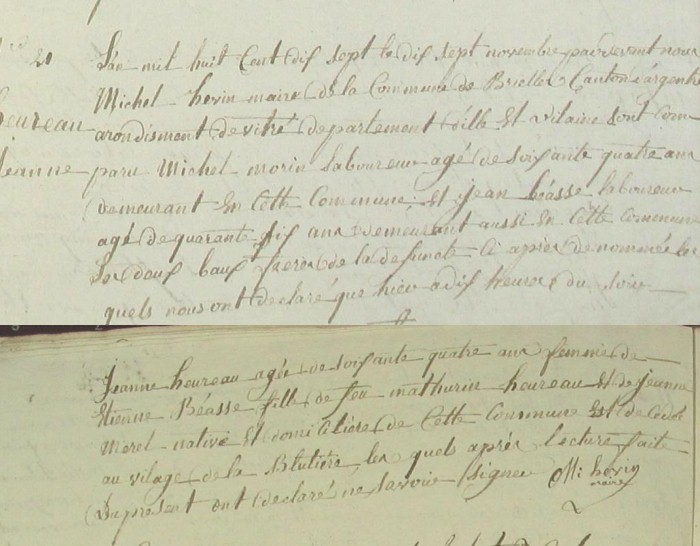 20
L'an mil huit Cent dix sept le dix sept novembre pardevant nous
Michel hevin maire de la Commune de Brielles Canton d'argentré
heureau
arondisment de vitré departement d'ille Et vilaine sont Com
Jeanne
paru Michel morin laboureur agé de soixante quatre ans
demeurant En Cette Commune Et jean béasse laboureur
agé de quarante six ans demeurant aussi En Cette Commune
les deux baux freres de la defunte Ci aprés denommée les
quels nous ont declaré que hier a dix heures du soire
Jeanne heureau agée de soixante quatre ans femme de
Etienne Béasse fille de feu mathurin heureau Et de jeanne
Morel native Et domiciliere de Cette Commune Est decedé
au vilage de la Blutière les quels aprés lecture faite
Du present ont declaré ne savoir signer M: hevin
maire